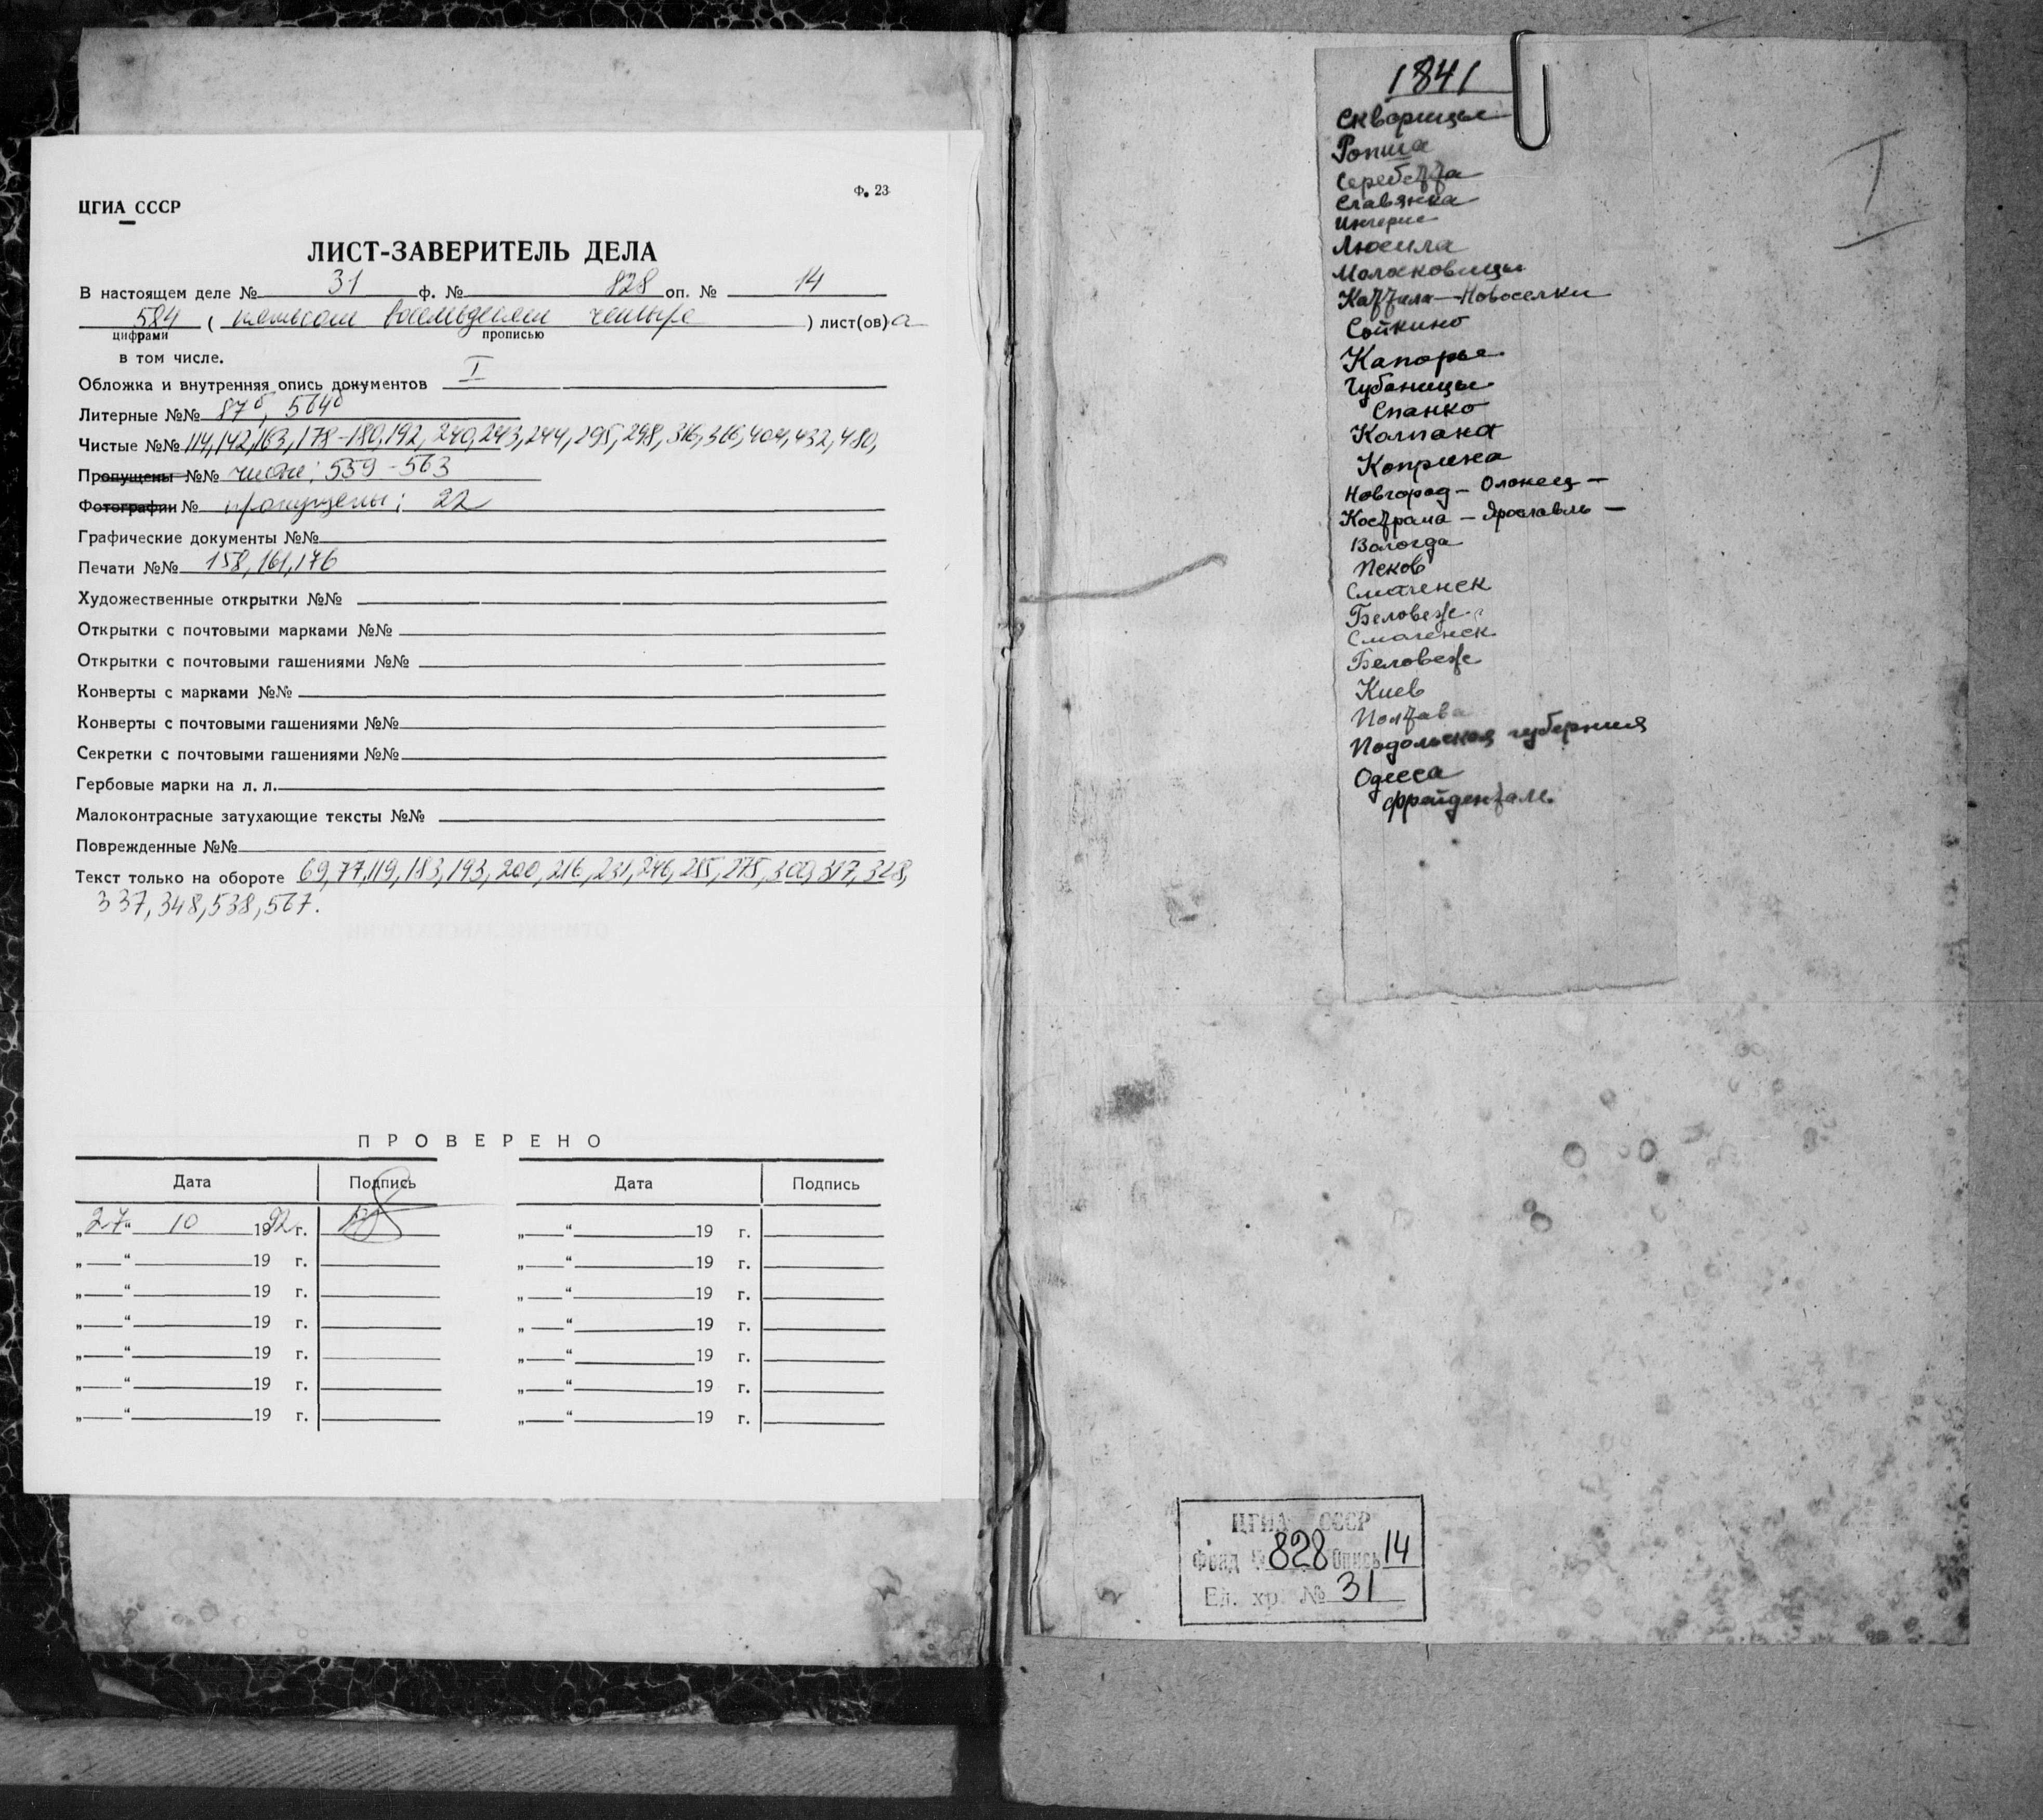 ЦГИА СССР
Ф. 23
ЛИСТ-ЗАВЕРИТЕЛЬ ДЕЛА
В настоящем деле № 31 ф. № 828 оп. № 14
584 ( пятьсот восемьдесят четыре ) лист(ов)а
цифрами прописью
в том числе.
Обложка и внутренняя опись документов I
Литерные №№ 87б, 564б
Чистые №№ 114, 142, 163, 178-180, 192, 240, 243, 244, 295, 298, 316, 366, 404, 432, 480,
Пропущены №№ чистые: 559-563
Фотографии № пропущены: 22
Графические документы №№
Печати №№ 158, 161, 176
Художественные открытки №№
Открытки с почтовыми марками №№
Открытки с почтовыми гашениями №№
Конверты с марками №№
Конверты с почтовыми гашениями №№
Секретки с почтовыми гашениями №№
Гербовые марки на л. л.
Малоконтрасные затухающие тексты №№
Поврежденные №№
Текст только на обороте 69, 77, 119, 183, 193, 200, 216, 231, 246, 255, 275, 300, 317, 328,
337, 348, 538, 567.
ПРОВЕРЕНО
Дата Подпись Дата Подпись
„27“ 10 1992 г. „ “ 19 г.
„ “ 19 г. „ “ 19 г.
„ “ 19 г. „ “ 19 г.
„ “ 19 г. „ “ 19 г.
„ “ 19 г. „ “ 19 г.
„ “ 19 г. „ “ 19 г.
„ “ 19 г. „ “ 19 г.
1841
Скворицы
Ропша
Серебетта
Славянка
Ингерис
Люсила
Молосковицы
Каттила - Новоселки
Сойкино
Капорье
Губаницы
Спанко
Колпана
Коприна
Новгород - Олонец -
Кострома - Ярославль -
Вологда
Псков
Смоленск
Беловеже
Смоленск
Беловеже
Киев
Полтава
Подольская губерния
Одесса
Фрейденталь.
I
ЦГИА СССР
Фонд № 828 Опись 14
Ед. хр. № 31